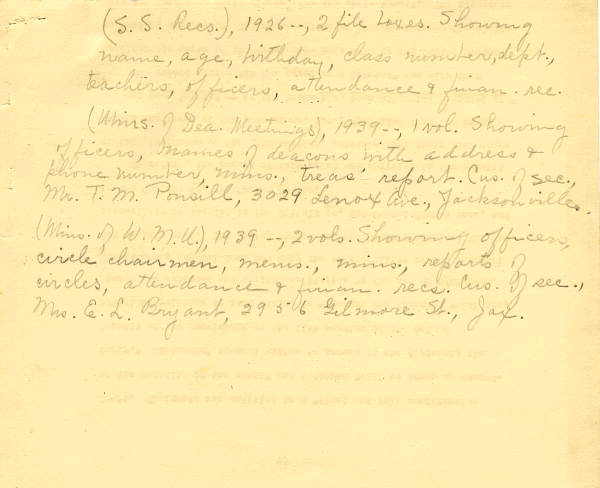 (S. S. Recs.), 1926--, 2 file boxes. Showing
name, age, birthday, class number, dept.,
teachers, officers, attendance & finan. rec.
(Mins. of Dea. Meetings), 1939--, 1 vol. Showing
officers, names of deacons with address &
phone number, mins., treas' report. Cus. of sec.,
Mr. T. M. Ponsill, 3029 Lenox Ave., Jacksonville.
(Mins. of W. M. U.), 1939 --, 2 vols. Showing officers,
circle chairmen, mems., mins., reports of
circles, attendance & finan. recs. Cus. of sec.,
Mrs. E. L. Bryant, 2956 Gilmore St., Jax.